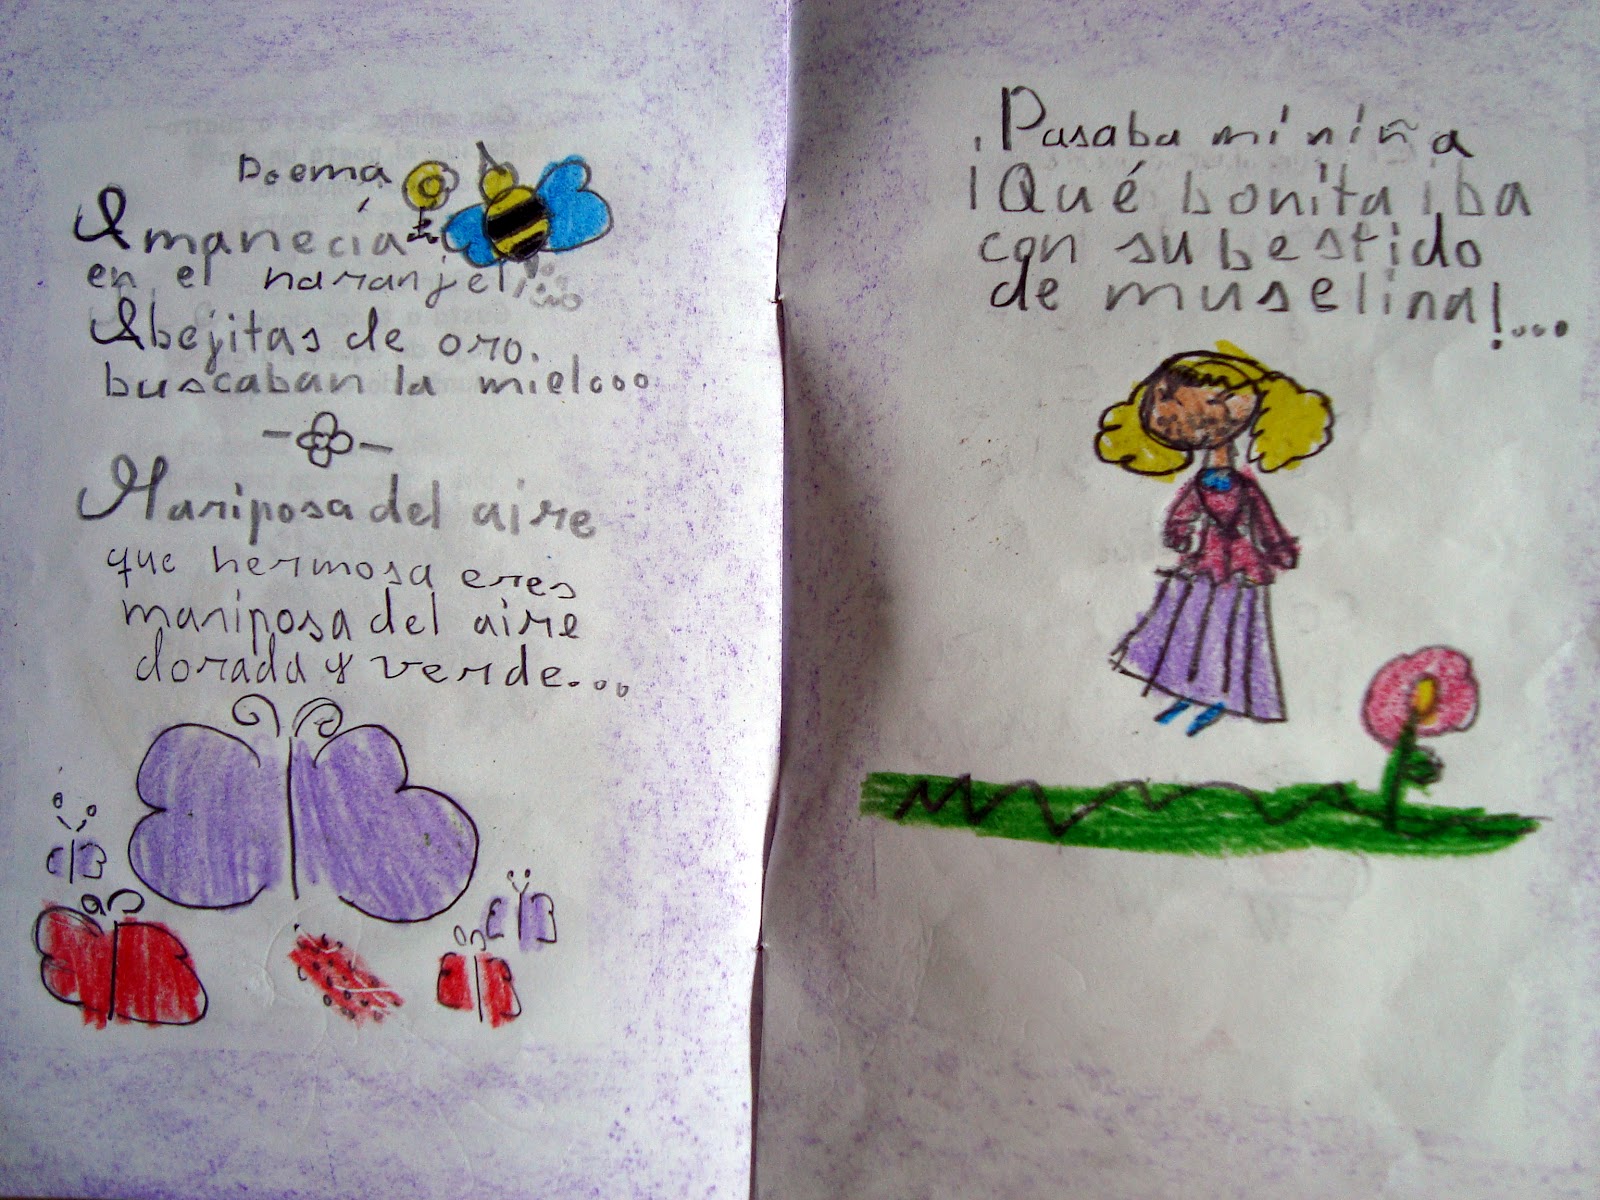 Poema
Amanecía
en el naranjel
Abejitas de oro.
buscaban la miel...
Mariposa del aire
que hermosa eres
mariposa del aire
dorada y verde...
¡Pasaba mi niña
¡Qué bonita iba
con su bestido
de muselina!...